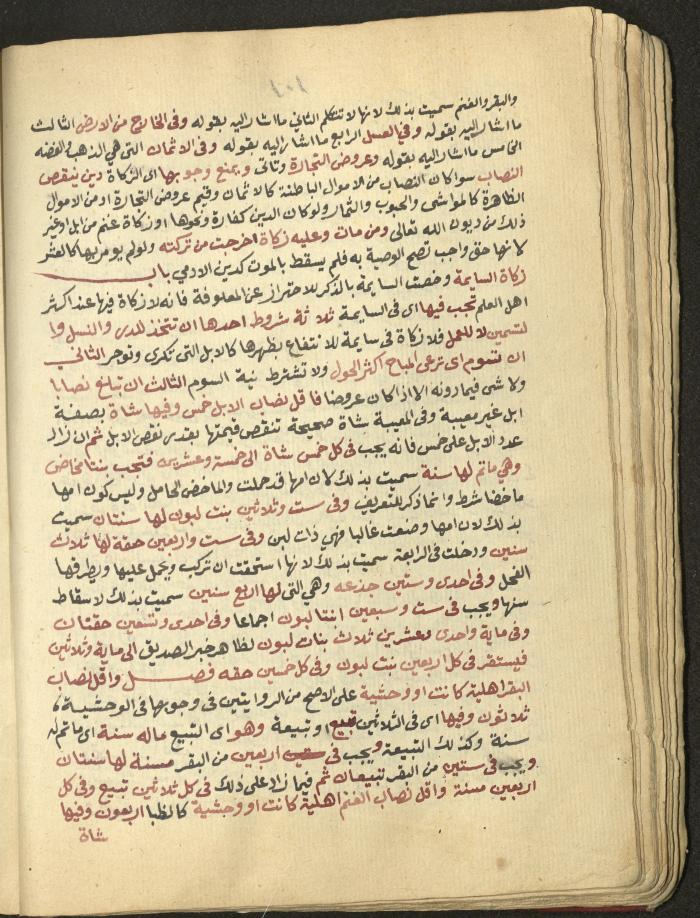 ١٠١
والبقر والغنم سميت بذلك لانها لا تتكلم الثاني ما اشار اليه بقوله وفي الخارج من الارض الثالث
ما اشار اليه بقوله وفي العسل الرابع ما اشار اليه بقوله وفي الاثمان التي هي الذهب والفضة
الخامس ما اشار اليه بقوله وعروض التجارة وتاتي ويمنع وجوبها اي الزكاة دين ينقص
النصاب سوا كان النصاب من الاموال الباطنة كالاثمان وقيم عروض التجارة او من الاموال
الظاهرة كالمواشي والحبوب والثمار ولو كان الدين كفارة ونحوها او زكاة غنم من ابل او غير
ذلك من ديون الله تعالى ومن مات وعليه زكاة اخرجت من تركته ولو لم يوص بها كالعشر
لانها حق واجب تصح الوصية به فلم يسقط بالموت كدين الادمي باب
زكاة السايمة وخصت السايمة بالذكر للاحتراز عن المعلوفة فانه لا زكاة فيها عند اكثر
اهل العلم تجب فيها اي في السايمة ثلاثة شروط احدها ان تتخذ للدر والنسل وا
لتسمين لا للعمل فلا زكاة في سايمة للانتفاع بظهرها كالابل التي تكرى وتوجر الثاني
ان تسوم اي ترعى المباح اكثر الحول ولا تشترط نية السوم الثالث ان تبلغ نصابا
ولا شي فيما دونه الا اذا كان عروضا فاقل نصاب الابل خمس وفيها شاة بصفة
ابل غير معيبة وفي المعيبة شاة صحيحة تنقص قيمتها بقدر نقص الابل ثم ان زاد
عدد الابل على خمس فانه يجب في كل خمس شاة الى خمسة وعشرين فتجب بنت مخاض
وهي ما تم لها سنة سميت بذلك لان امها قد حملت والماخض الحامل وليس كون امها
ماخضا شرط وانما ذكر للتعريف وفي ست وثلاثين بنت لبون لها سنتان سميت
بذلك لان امها وضعت غالبا فهي ذات لبن وفي ست واربعين حقة لها ثلاث
سنين ودخلت في الرابعة سميت بذلك لانها استحقت ان تركب ويحمل عليها ويطرقها
الفحل وفي احدى وستين جذعه وهي التي لها اربع سنين سميت بذلك لاسقاط
سنها ويجب في ست وسبعين ابنتا لبون اجماعا وفي احدى وتسعين حقتان
وفي ماية واحدى وعشرين ثلاث بنات لبون لظاهر خبر الصديق الى ماية وثلاثين
فيستقر في كل اربعين بنت لبون وفي كل خمسين حقه فصل واقل نصاب
البقر اهلية كانت او وحشية على الاصح من الروايتين في وجوبها في الوحشية
ثلاثون وفيها اي في الثلاثين تبيع او تبيعة وهو اي التبيع ماله سنة اي ما تم له
سنة وكذلك التبيعة ويجب في اربعين من البقر مسنة لها سنتان
ويجب في ستين من البقر تبيعان ثم فيما زاد على ذلك في كل ثلاثين تبيع وفي كل
اربعين مسنة واقل نصاب الغنم اهلية كانت او وحشية كالظبا اربعون وفيها
شاة